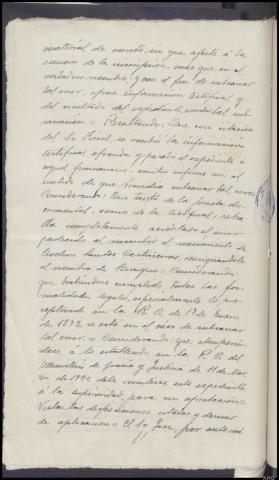 material de escrito, sin que afecte á la
esencia de la inscripción, más que en el
verdadero nombre; y con el fin de subsanar
tal error, ofrece información testifical y
del resultado del expediente, acordar la sub-
sanación = Resultando: Que con citación
del Sr. Fiscal se recibió la información
testifical ofrecida y pasado el expediente á
aquel funcionario emitió informe en el
sentido de que procedía subsanar tal error.
Considerando: Que tanto de la prueba do-
cumental, como de la testifical, resul-
ta completamente acreditado el error
padecido al inscribir el nacimiento de
Avelina Santos, consignándole
el nombre de Benigna = Considerando
que habiéndose cumplido todas las for-
malidades legales, especialmente lo pre-
ceptuado en la R. O. de 1º de Enero
de 1872, se está en el caso de subsanar
tal error. = Considerando: que
á lo establecido en la R. O. del
Ministerio de Gracia y Justicia de 11 de Mar-
zo de debe remitirse este expediente
á la superioridad, para su aprobación =
Vistas las disposiciones citadas y demás
de aplicación = El Sr. Juez, por ante mí